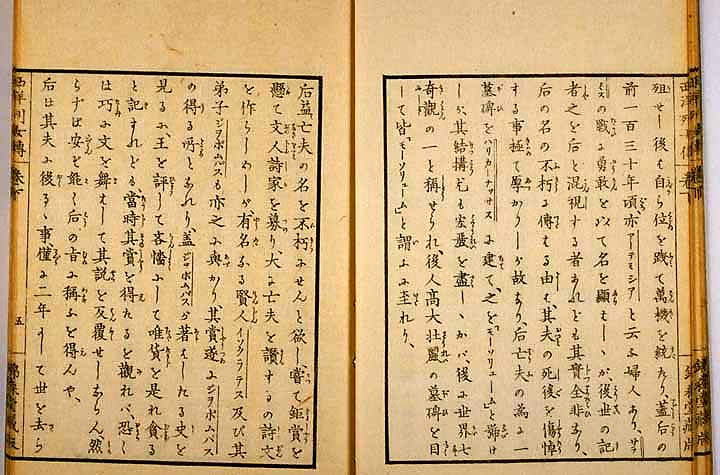 殂せし後も自ら位を践て萬機を統たり、蓋后の
前一百三十年頃、亦アーテミシアと云ふ婦人あり、サラ
の戦に勇敢を以て名を顕せしが、後世の記
者之を后と混視する者あれども其實全非なり、
后の名の不朽に傳はる由は、其夫の死後を傷悼
する事極て厚かりしが故なり、后亡夫の為に一
墓碑をハリカーナッサスに建て、之を「モーソリューム」と號け
しが、其結構尤も宏麗を盡しゝかバ、後に世界七
奇觀の一と稱せられ、後人高大壮麗の墓碑を目
して皆「モーソリューム」と謂ふに至れり、
后益亡夫の名を不朽にせんと欲し、嘗て鉅賞を
懸て文人詩家を募り、大に亡夫を讃するの詩文
を作らしめしが、有名なる賢人イソクラテス及び其
弟子ジヲポムパスも亦之に與かり、其賞遂にジヲポムパス
の得る所となれり、蓋ジヲポムパスが著はしたる史を
見るに、王を評して吝嗇にして唯貨を是れ貪る
と記されども、當時其賞を得たるを觀れバ、恐く
は巧に文を舞はして其説を反覆せしならん、然
らずば安を能く后の旨に稱ふを得んや、
后は其夫に後るゝ事、僅に二年にして世を去ら
西洋列女傳 巻下
五
錦森堂藏版